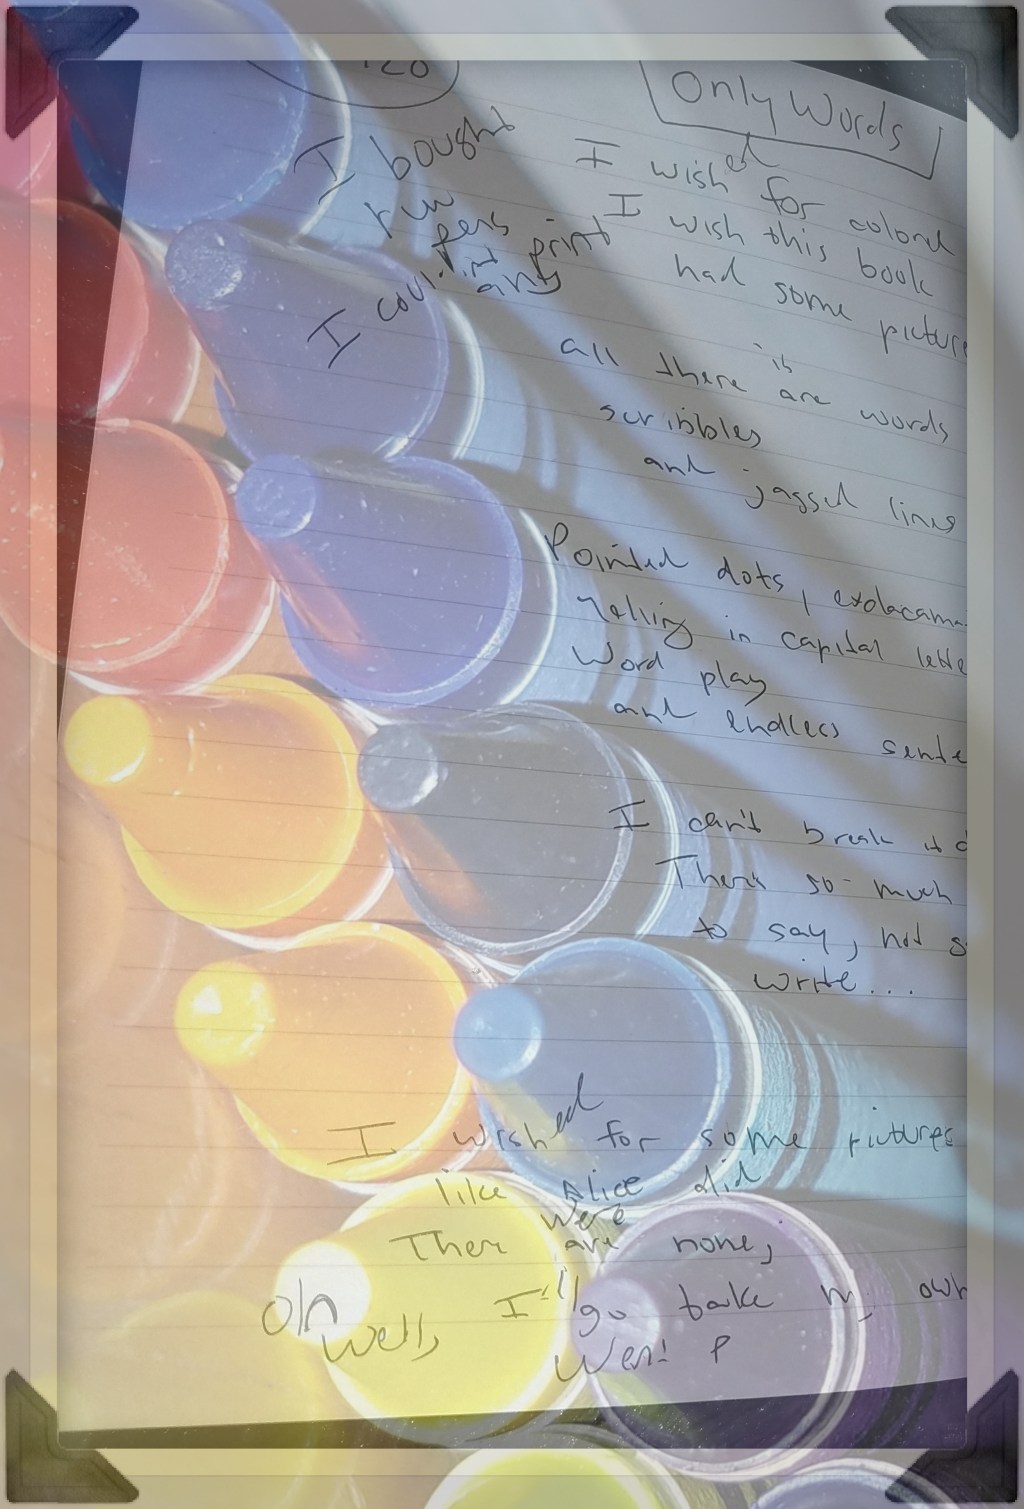 120
Only Words
I bought
new
pens
I couldn't print
any
I wished for colored
I wish this book
had some picture
is
all there are words
scribbles
and jagged lines
Pointed dots,
Yelling in capital lette
Word play
and endless sente
I can't break it d
There's so much
to say, not s
write...
I wished for some pictures
like Alice did
were
There are none,
Oh well, I'll go
own